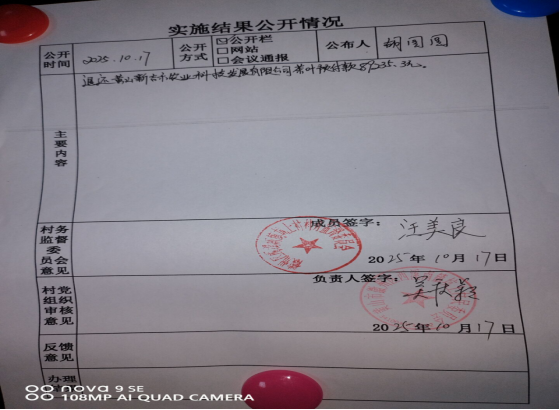 实施结果公开情况
公开时间 2025.10.17 公开方式 ☑公开栏 □网站 □会议通报 公布人 胡圆圆
主要内容 退还黄山新 农业科技发展有限公司茶叶预付款 35.3元。
村务监督委员会意见 成员签字: 汪美良
2025年10月17日
村党组织审核意见 负责人签字: 吴秋
2025年10月17日
反馈意见
办理
nova 9 SE
108MP AI QUAD CAMERA